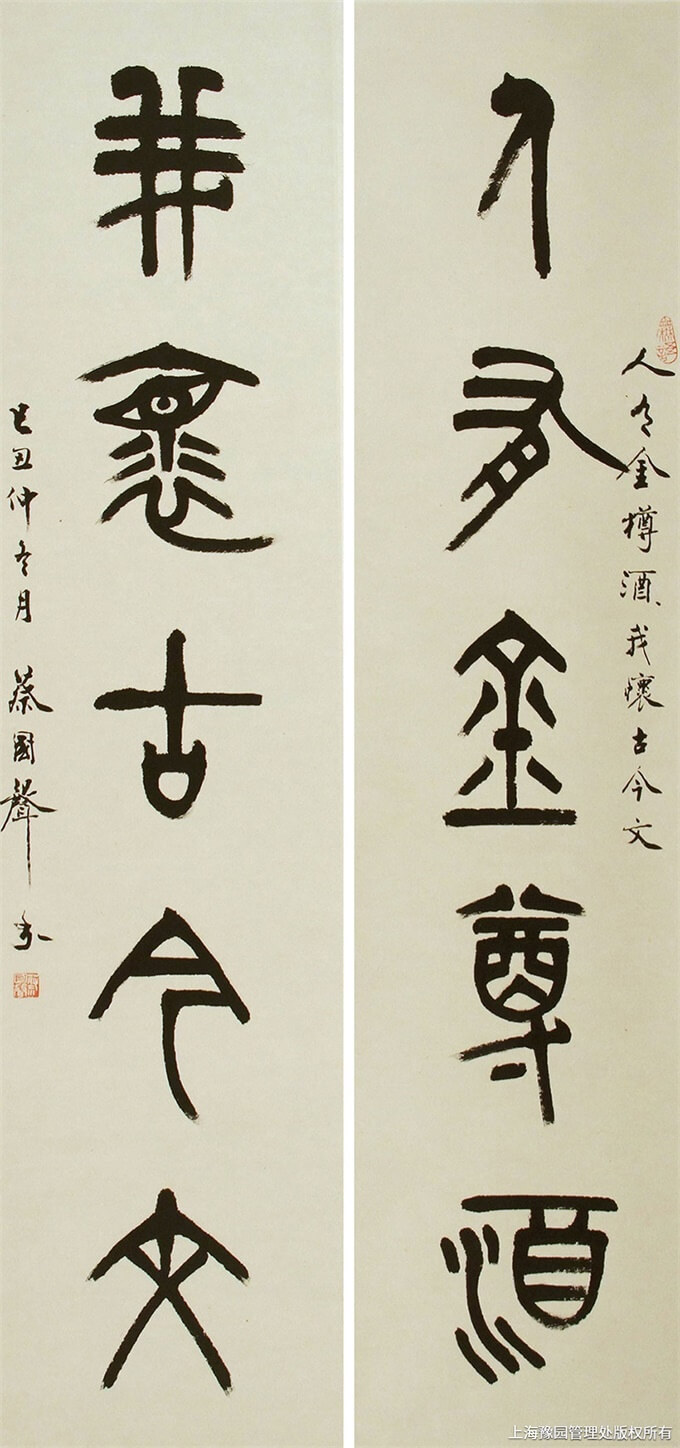 人有金樽酒、我懷古今文
人有金尊酒
我褱古今文
己丑仲冬月 蔡國聲書
上海豫园管理处版权所有